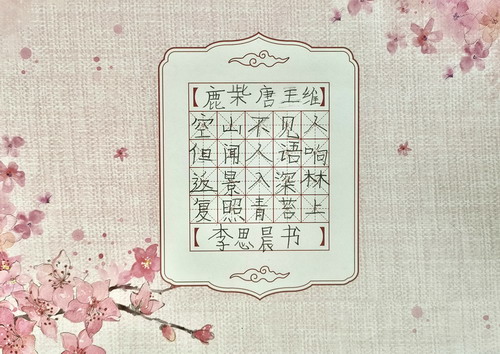 【鹿柴 唐 王维】
空山不见人
但闻人语响
返景入深林
复照青苔上
【李思晨书】